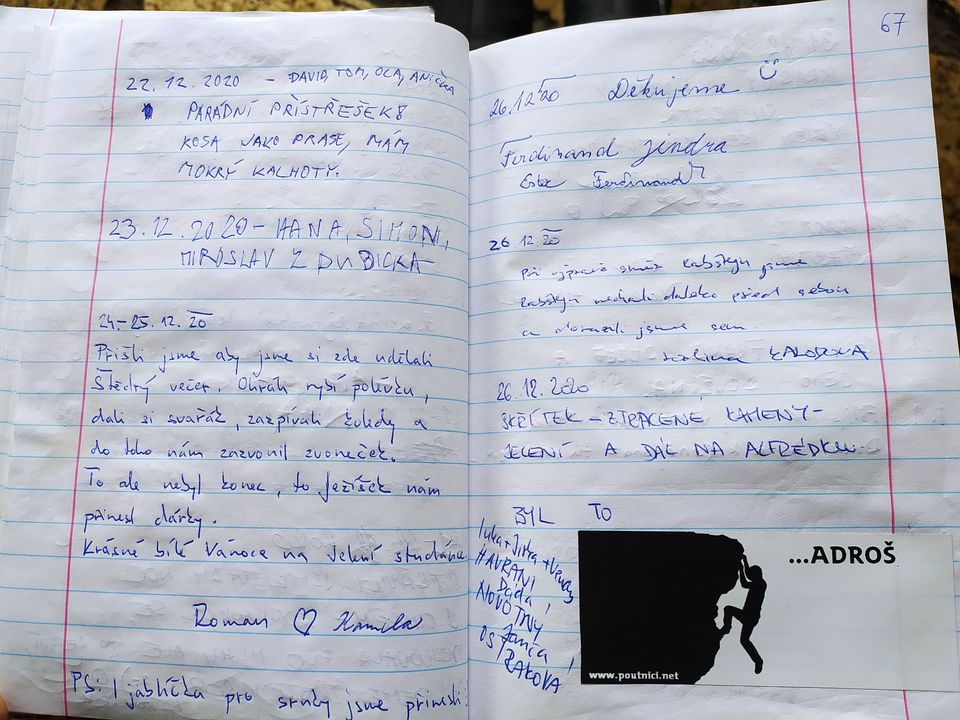 22.12.2020 – DAVID, TOM, OLA, ANIČKA
PARÁDNÍ PŘÍSTŘEŠEK!
KOSA JAKO PRASE, MÁM
MOKRÝ KALHOTY.
23.12.2020 – HANA, ŠIMON,
MIROSLAV Z DUBICKA
24.–25.12.20
Přišli jsme aby jsme si zde udělali
Štědrý večer. Ohřáli rybí polívku,
dali si svařák, zazpívali koledy a
do toho nám zazvonil zvoneček.
To ale nebyl konec, to Ježíšek nám
přinesl dárky.
Krásné bílé Vánoce na Jelení studánce
Roman ♡ Kamila
PS: I jablíčka pro srnky jsme přinesli!
67
26.12.20 Děkujeme
Ferdinand Jindra
Ferdinand
26 12. 20
Při výpravě směr jsme
nechali daleko před sebou
a dorazili jsme sem.
26.12.2020
SKŘÍTEK – ZTRACENÉ KAMENY –
JELENÍ A DÁL NA ALFRÉDKU.
BYL TO
...ADROŠ
Luka + Jitka +
HAVRANI
Dáda,
NOVOTNÝ
Janča
www.poutnici.net